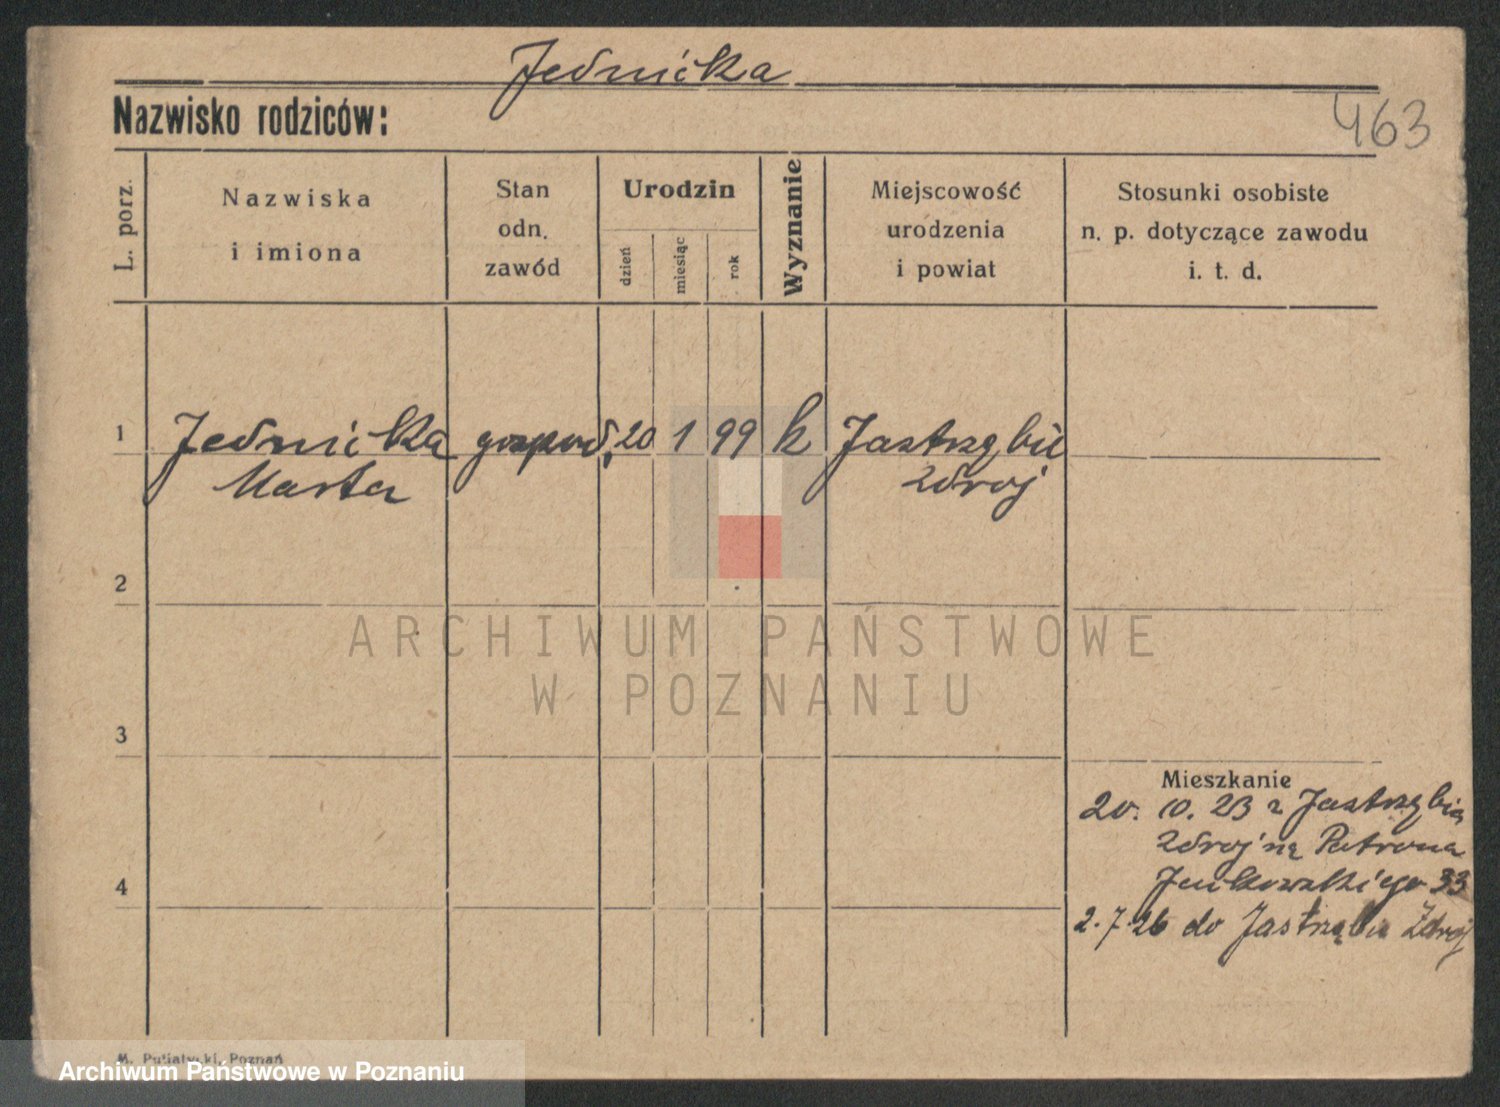 Jednicka
463
Nazwisko rodziców:
L. porz.
Nazwiska
i imiona
Stan
odn.
zawód
Urodzin
dzień
miesiąc
rok
Wyznanie
Miejscowość
urodzenia
i powiat
Stosunki osobiste
n. p. dotyczące zawodu
i. t. d.
1 Jednicka gospod. 20 1 99 k Jastrzębie
Marta Zdroj
2
ARCHIWUM PAŃSTWOWE
W POZNANIU
3
Mieszkanie
20. 10. 23 z Jastrzębia
Zdroj na Patrona
Jackowskiego 33
4
2.7.26 do Jastrzębie Zdroj
M. Putiatycki, Poznań
Archiwum Państwowe w Poznaniu